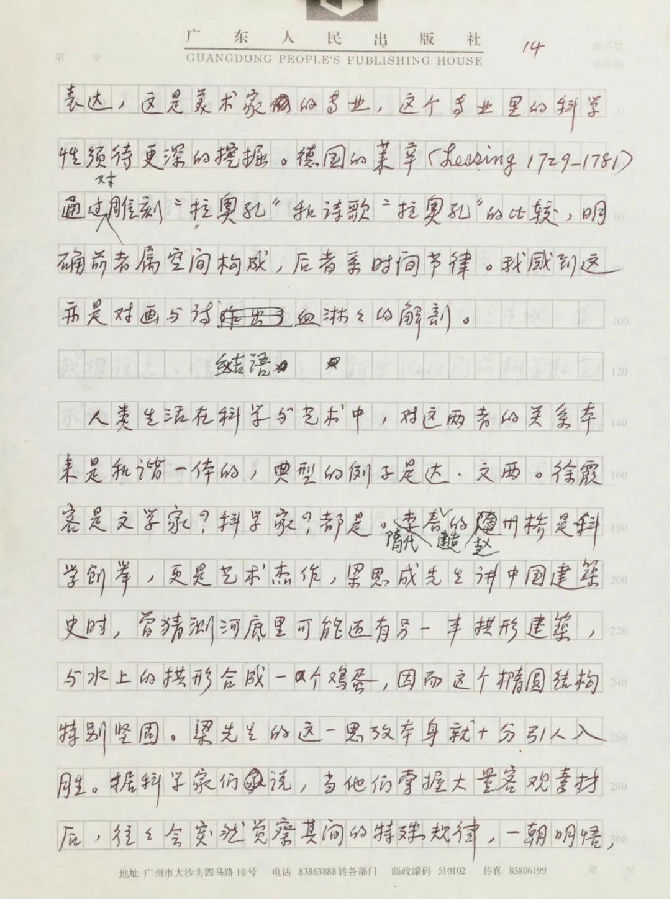 广东人民出版社
14
GUANGDONG PEOPLE'S PUBLISHING HOUSE
表达，这是美术家的专业，这个专业里的科学
性须待更深的挖掘。德国的莱辛(Lessing 1729-1781)
对
通过雕刻“拉奥孔”和诗歌“拉奥孔”的比较，明
确前者属空间构成，后者系时间节律。我感到这
亦是对画与诗作出了血淋々的解剖。
100
结语
120
人类生活在科学与艺术中，对这两者的关系本
140
来是和谐一体的，典型的例子是达·文西。徐霞
160
客是文学家？科学家？都是。李春的随州桥是科
180
隋代 建造 赵
学创举，更是艺术杰作，梁思成先生讲中国建筑
200
史时，曾猜测河底里可能还有另一半拱形建筑，
220
与水上的拱形合成一个鸡蛋，因而这个椭圆结构
240
特别坚固。梁先生的这一思考本身就十分引人入
260
胜。据科学家们说，当他们掌握大量客观素材
280
后，往々会突然觉察其间的特殊规律，一朝明悟，
300
地址 广州市大沙头四马路10号 电话 83863888转各部门 邮政编码 510102 传真 83806199